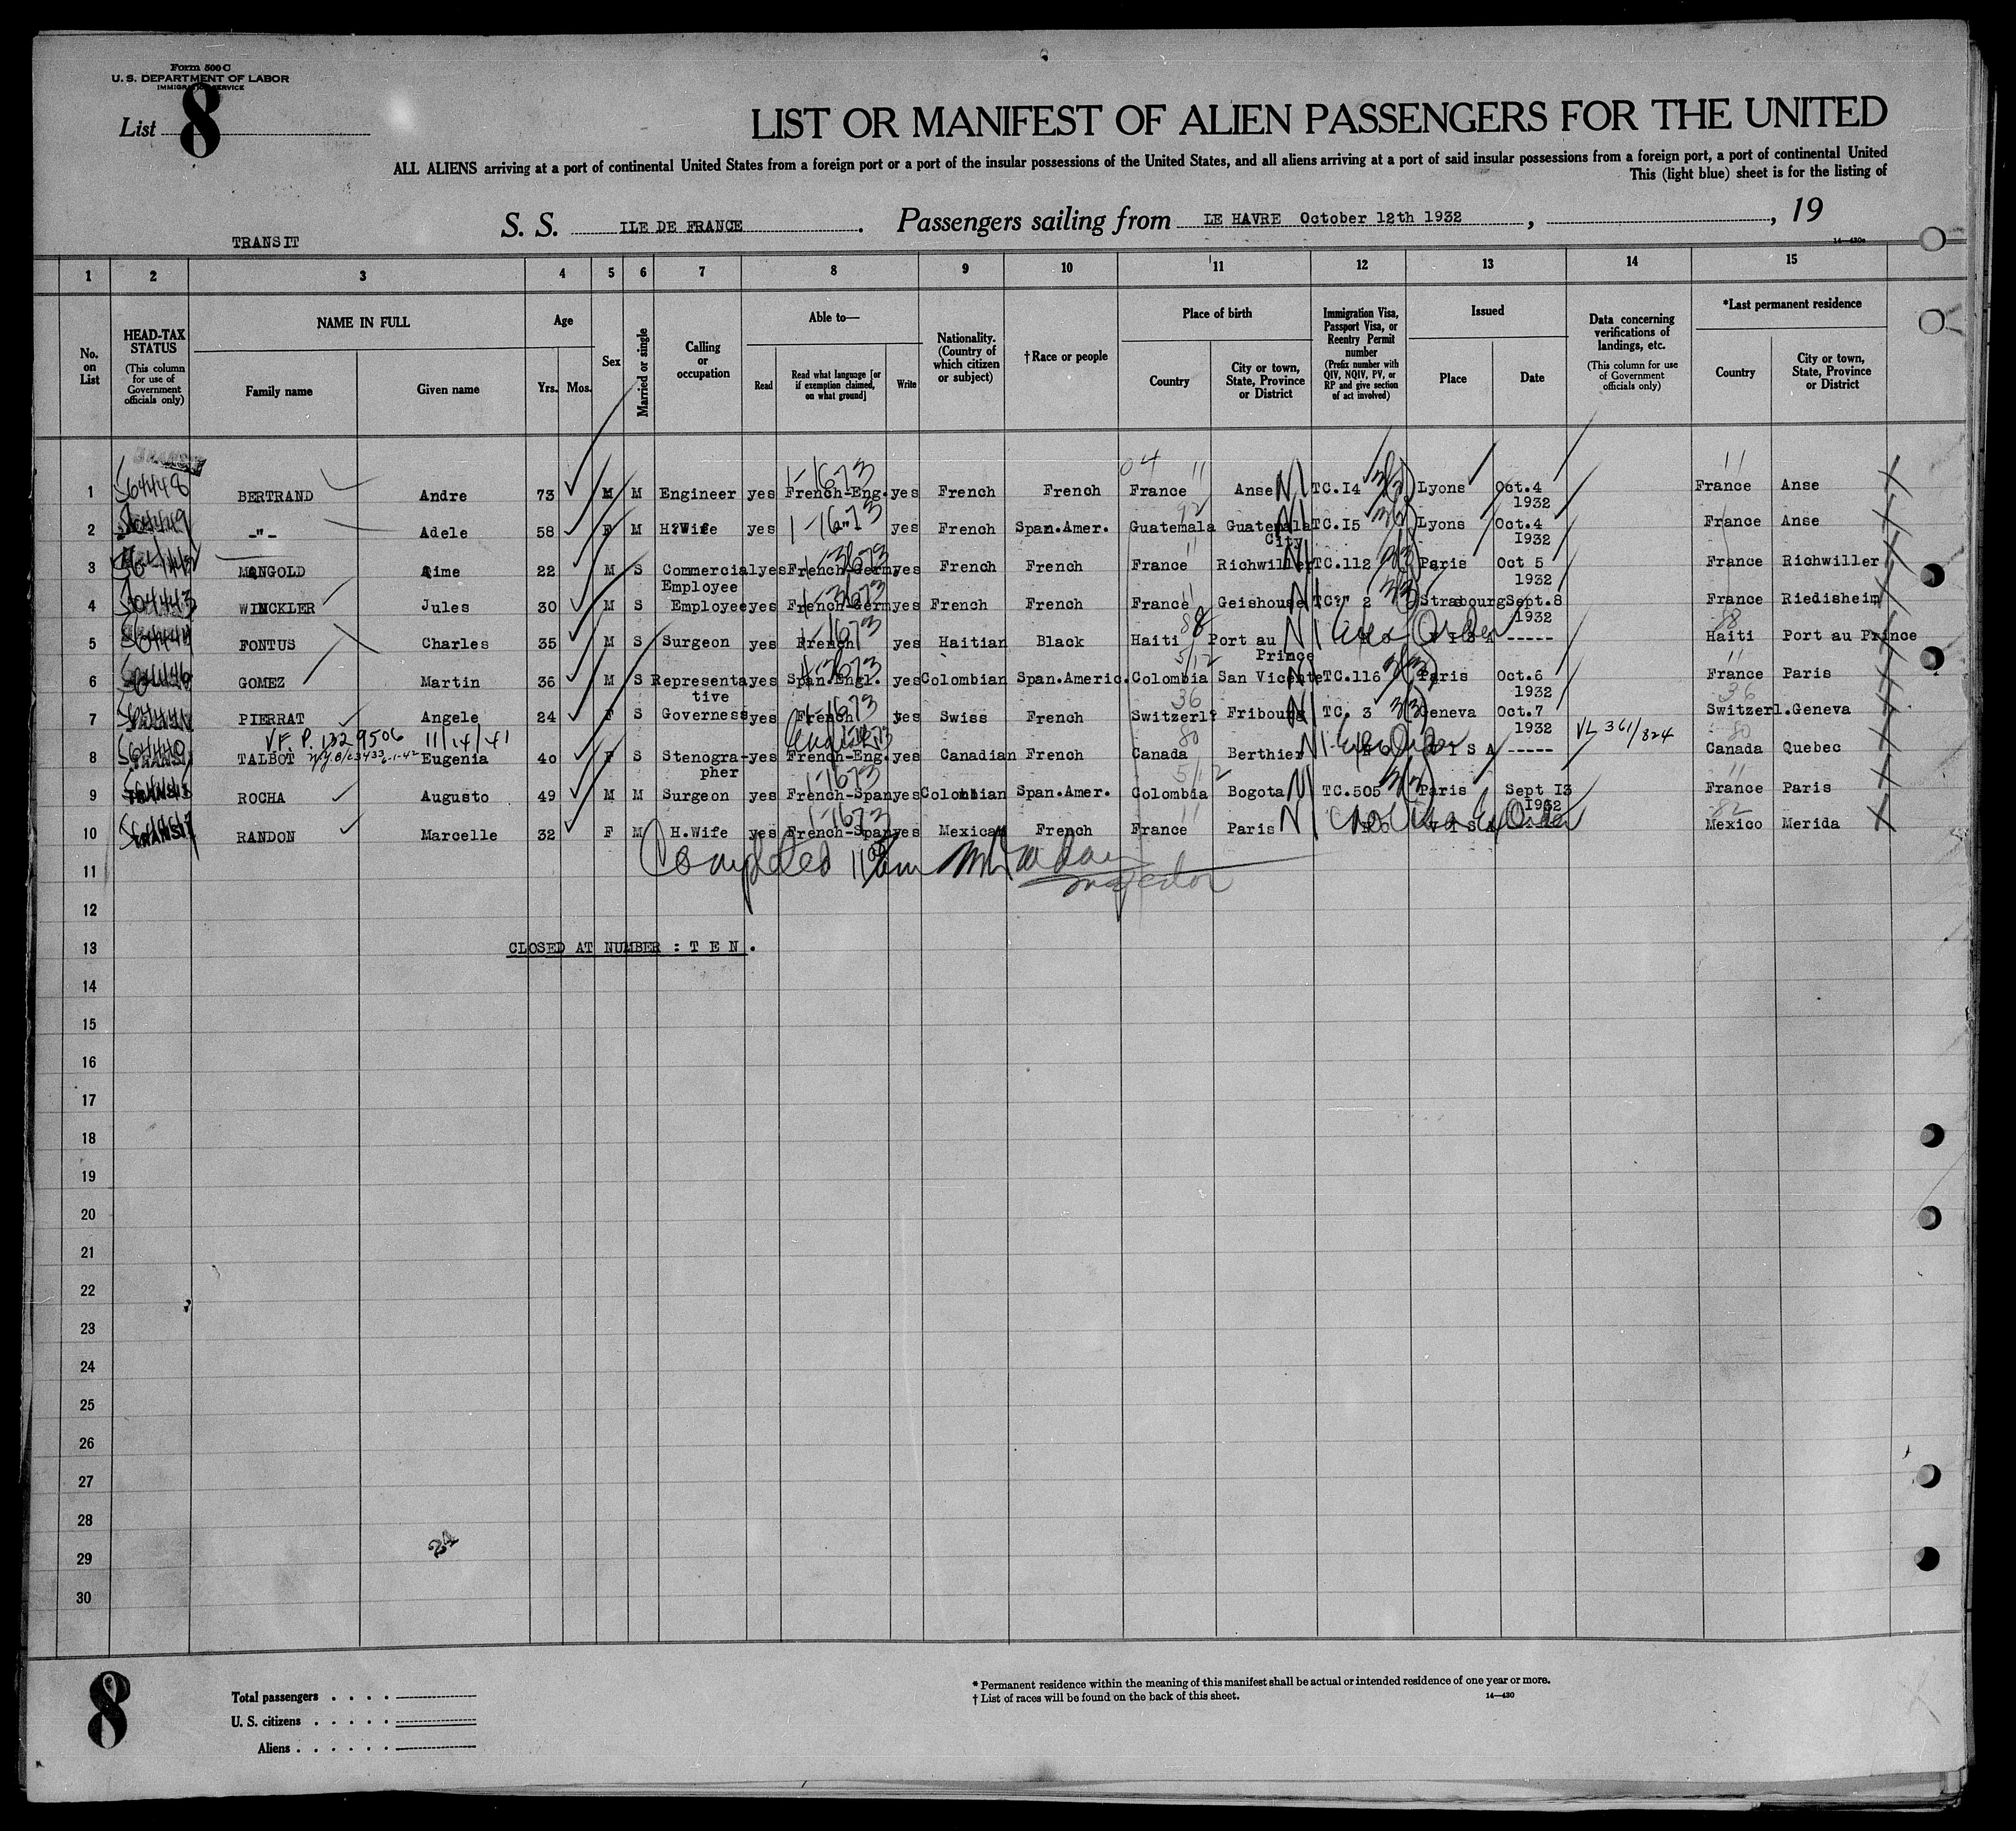 Form 500 C
U. S. DEPARTMENT OF LABOR
IMMIGRATION SERVICE
List 8
LIST OR MANIFEST OF ALIEN PASSENGERS FOR THE UNITED
ALL ALIENS arriving at a port of continental United States from a foreign port or a port of the insular possessions of the United States, and all aliens arriving at a port of said insular possessions from a foreign port, a port of continental United
This (light blue) sheet is for the listing of
S. S. ILE DE FRANCE. Passengers sailing from LE HAVRE October 12th 1932, , 19
TRANSIT
14—430c
1 2 3 4 5 6 7 8 9 10 11 12 13 14 15
No. on List
HEAD-TAX STATUS
(This column for use of Government officials only)
NAME IN FULL
Family name
Given name
Age
Yrs.
Mos.
Sex
Married or single
Calling or occupation
Able to—
Read
Read what language [or if exemption claimed, on what ground]
Write
Nationality. (Country of which citizen or subject)
†Race or people
Place of birth
Country
City or town, State, Province or District
Immigration Visa, Passport Visa, or Reentry Permit number
(Prefix number with QIV, NQIV, PV, or RP and give section of act involved)
Issued
Place
Date
Data concerning verifications of landings, etc.
(This column for use of Government officials only)
*Last permanent residence
Country
City or town, State, Province or District
1 56448 BERTRAND Andre 73 M M Engineer yes French-Eng. yes French French France Anse NI TC.I4 3(3) Lyons Oct.4 1932 France Anse
2 -"- Adele 58 F M H?Wife yes -"- yes French Span.Amer. Guatemala Guatemala City NI TC.I5 3(3) Lyons Oct.4 I932 France Anse
3 MANGOLD Aime 22 M S Commercial Employee yes French-Germ, yes French French France Richwiller NI TC.112 3(3) Paris Oct 5 1932 France Richwiller
4 WINCKLER Jules 30 M S Employee yes French-Germ yes French French France Geishouse NI TC?" 2 3(3) Strasbourg Sept.8 1932 France Riedisheim
5 FONTUS Charles 35 M S Surgeon yes French yes Haitian Black Haiti Port au Prince NI Exec Order ----- Haiti Port au Prince
6 GOMEZ Martin 36 M S Representative yes Span.Engl. yes Colombian Span.Americ. Colombia San Vicente NI TC.116 3(3) Paris Oct.6 1932 France Paris
7 PIERRAT Angele 24 F S Governess yes French yes Swiss French Switzerl? Fribourg NI TC. 3 3(3) Geneva Oct.7 1932 Switzerl. Geneva
V.F. P. 1329506 11/14/41
8 TALBOT Eugenia 40 F S Stenographer yes French-Eng. yes Canadian French Canada Berthier NI V I S A ----- VL 361/824 Canada Quebec
9 ROCHA Augusto 49 M M Surgeon yes French-Span yes Colombian Span.Amer. Colombia Bogota NI TC.505 3(3) Paris Sept I3 I932 France Paris
10 RANDON Marcelle 32 F M H.Wife yes French-Span yes Mexican French France Paris NI Order Mexico Merida
11 Completed 11 am Inspector
12
13 CLOSED AT NUMBER : T E N .
14
15
16
17
18
19
20
21
22
23
24
25
26
27
28
29
30
24
8
Total passengers
U. S. citizens
Aliens
* Permanent residence within the meaning of this manifest shall be actual or intended residence of one year or more.
† List of races will be found on the back of this sheet.
14—430